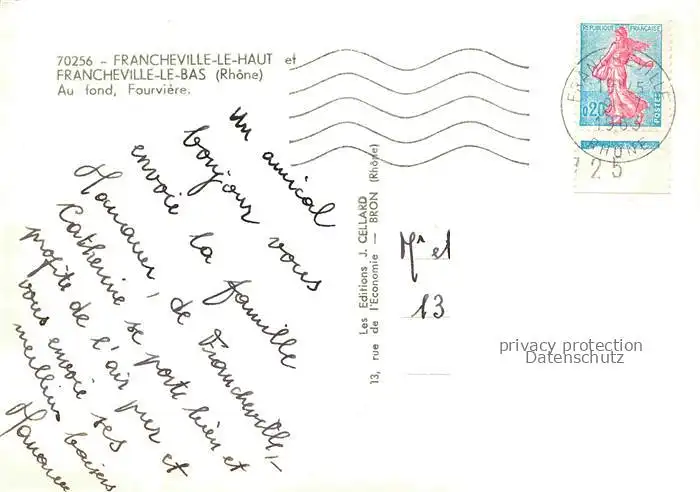 70256 - FRANCHEVILLE-LE-HAUT et
FRANCHEVILLE-LE-BAS (Rhône)
Au fond, Fourvière.
un amical
bonjour vous
envoie la famille
de Francheville,
Catherine se porte bien et
profite de l'air pur et
vous envoie ses
meilleurs baisers
Les Editions J. CELLARD
13, rue de l'Economie — BRON (Rhône)
REPUBLIQUE FRANÇAISE
0,20
POSTES
FRANCHEVILLE
RHONE
25
Mr et
13
privacy protection
Datenschutz